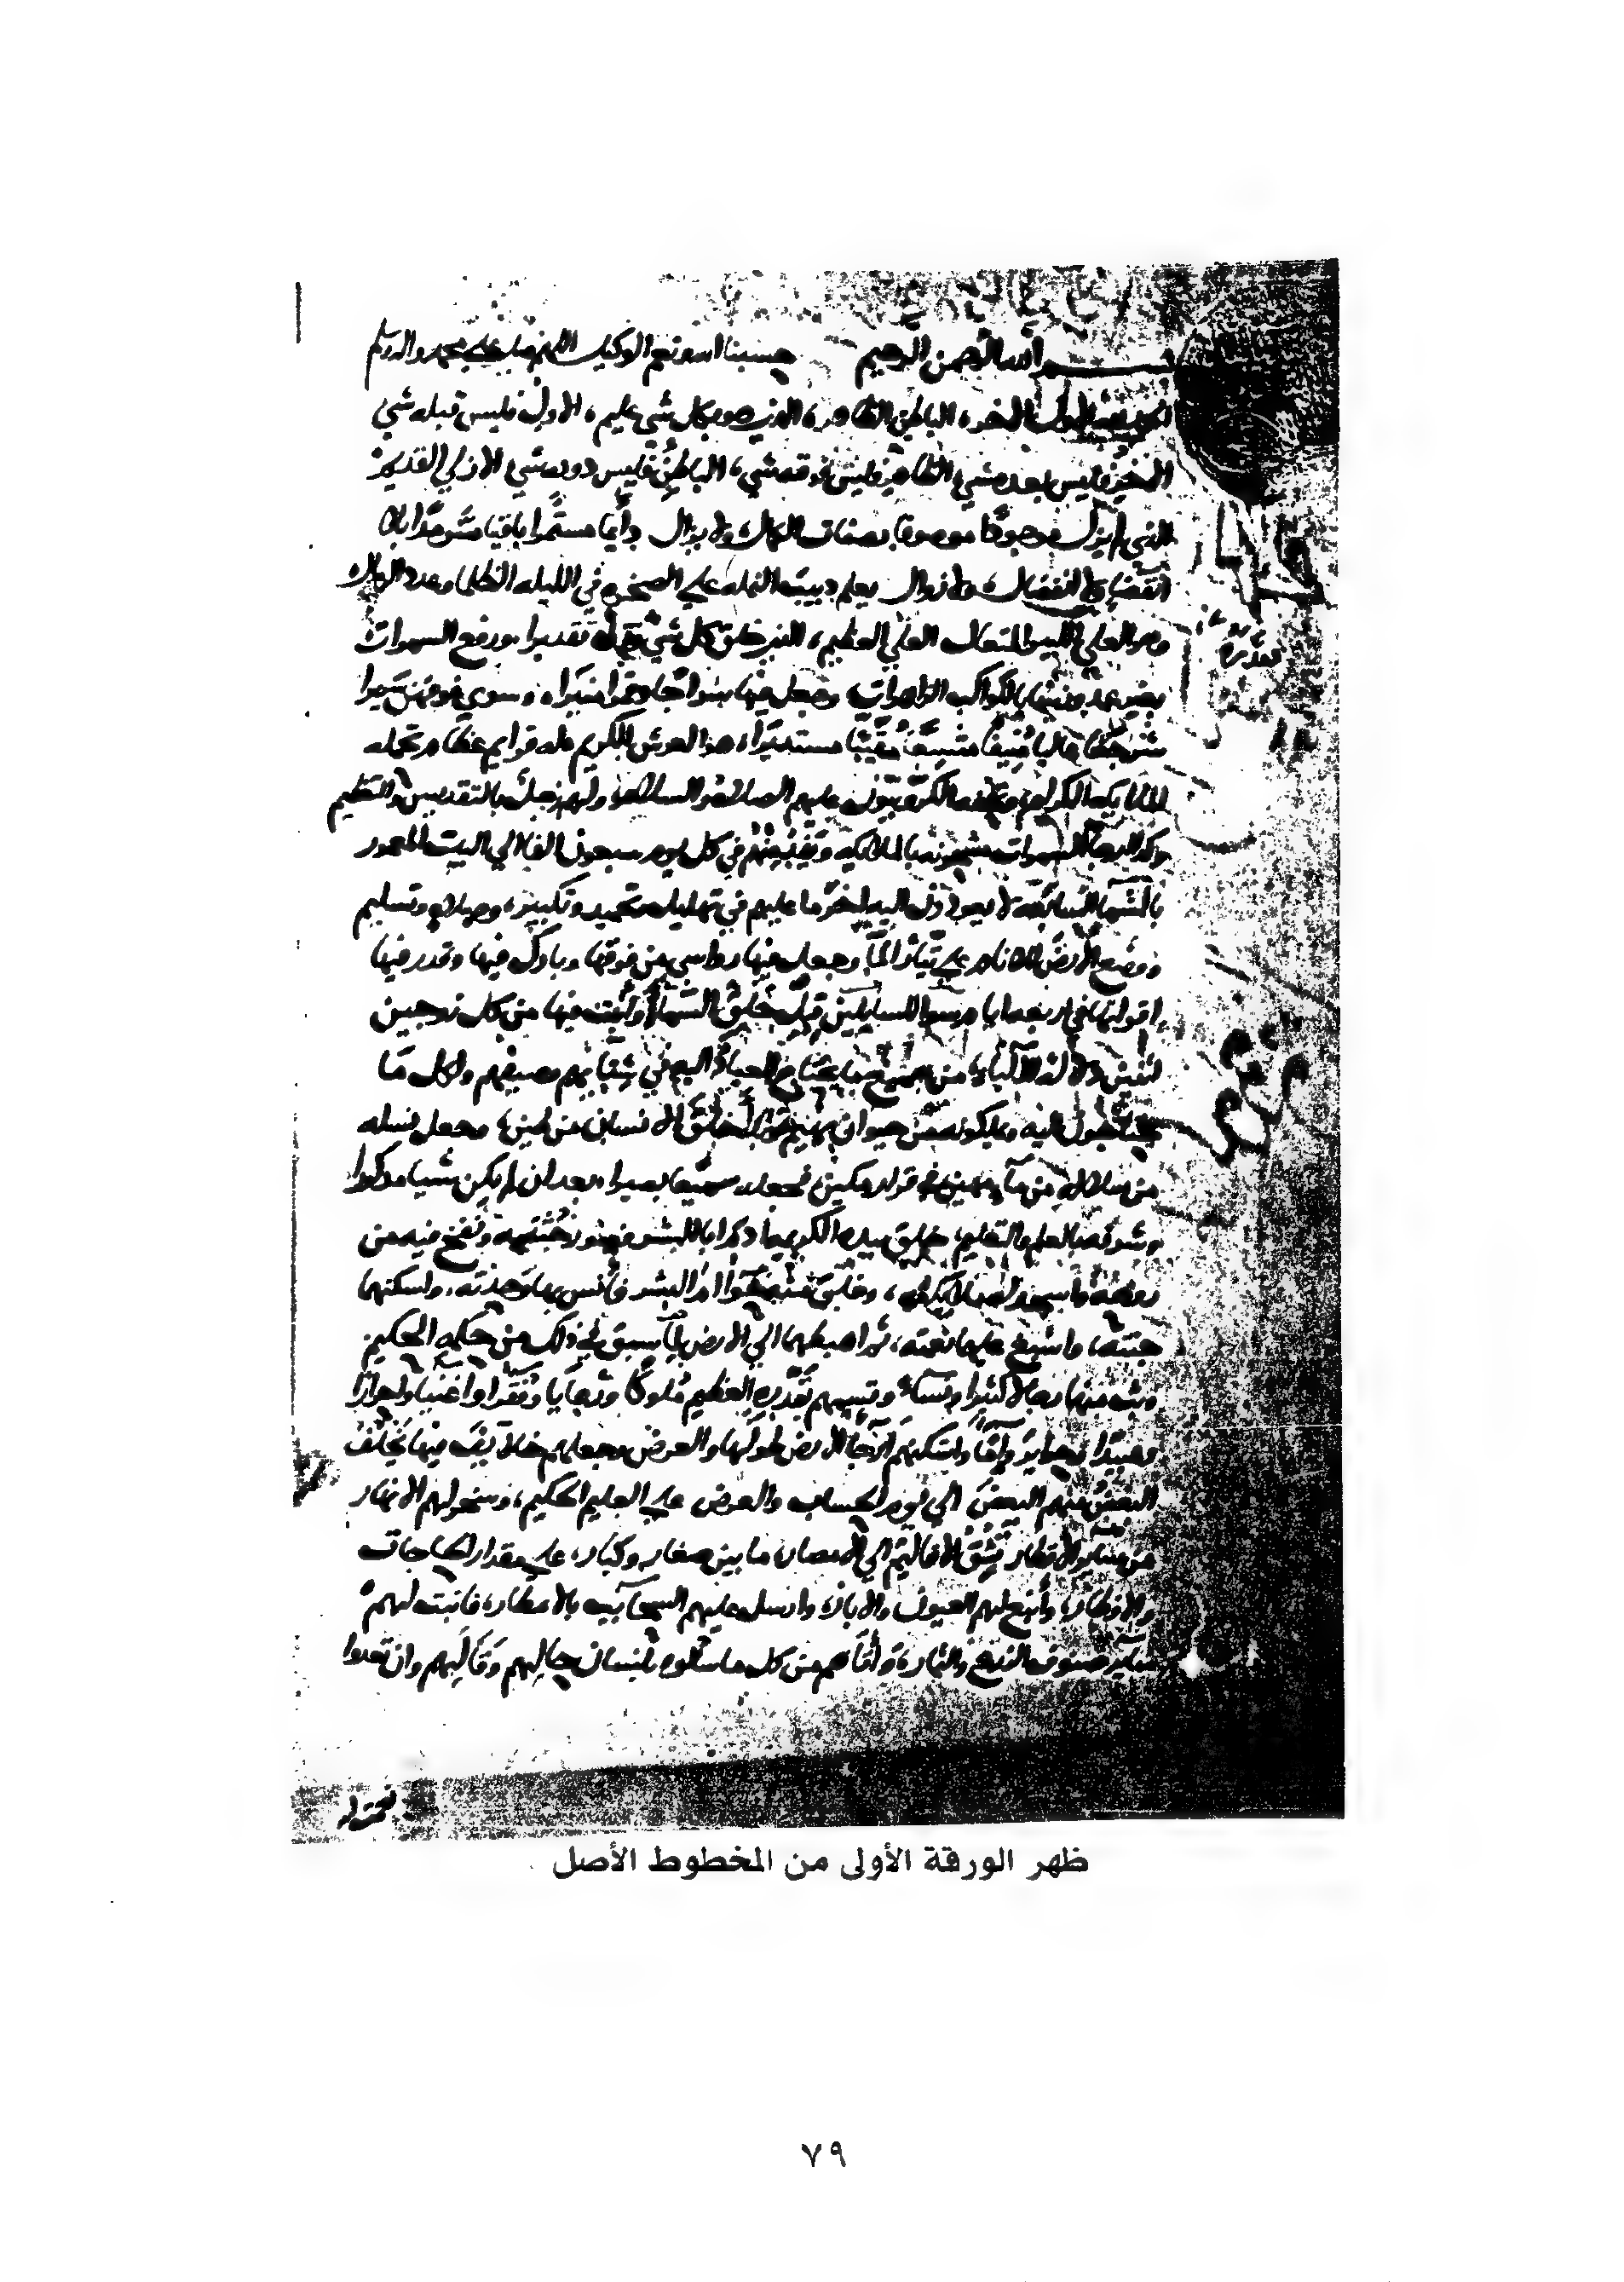 بسم الله الرحمن الرحيم حسبنا الله ونعم الوكيل اللهم صل على محمد واله وسلم
الاول الاخر، الباطن الظاهر، الذي هو بكل شي عليم، الاول فليس قبله شي
الاخر فليس بعده شي الظاهر فليس فوقه شي، الباطن فليس دونه شي الازلي القديم
الذي لم يزل موجودا موصوفا بصفات الكمال ولا يزال دائما مستمرا باقيا سرمديا بلا
انقضا ولا انفصال ولا زوال يعلم دبيب النمله على الصخره في الليله الظلما وعدد الرمال
وهو العلي الكبير المتعال العلي العظيم، الذي خلق كل شي فقدره تقديرا، ورفع السموات
بغير عمد وزينها بالكواكب الزاهرات وجعل فيها سراجا وقمرا منيرا، وسوى فوقهن سريرا
شرجعا عاليا منيفا متسعا مقببا مستديرا، هذا العرش الكريم له قوايم عظام تحمله
الملايكه الكرام الكروبيون عليهم الصلاه والسلام ولهم زجل بالتقديس والتعظيم
وكذا ارجا السموات مشحونه بالملايكه في كل يوم سبعون الفا الي البيت المعمور
بالسما السابعه لا يعودون اليه اخر ما عليهم في تهليل وتحميد وتكبير، وصلاه وتسليم
ووضع الارض للانام على تيار الما وجعل فيها رواسي من فوقها وبارك فيها وقدر فيها
اقواتها في اربعه ايام سوا للسايلين قبل خلق السما وانبت فيها من كل زوجين
اثنين دلاله للالبا من جميع ما يحتاج العباد اليه في شتايهم وصيفهم ولكل ما
يحتاجون اليه ويملكونه من حيوان بهيم خلق الانسان من طين، وجعل نسله
من سلاله من ما مهين في قرار مكين فجعله سميعا بصيرا بعد ان لم يكن شيا مذكورا
وشرفه بالعلم والتعليم، خلق بيده الكريمه ادم ابا البشر وصور جثته ونفخ فيه من
روحه واسجد له ملايكته، وخلق منه حوا ام البشر فانس بها وحدته، واسكنهما
جنته، واسبغ عليهما نعمته، ثم اهبطهما الي الارض لما سبق في ذلك من حكمه الحكيم
وبث منهما رجالا كثيرا ونسا وقسمهم بقدره العظيم ملوكا ورعايا وفقرا واغنيا واحرارا
وعبيدا وحراير واما واسكنهم ارجا الارض طولها والعرض وجعلهم خلايف فيها يخلف
البعض منهم البعض الي يوم الحساب والعرض على العليم الحكيم، وسخر لهم الانهار
من ساير الاقطار تشق الاقاليم الي الامصار ما بين صغار وكبار، على مقدار الحاجات
والاوطار، وانبع لهم العيون والابار، وارسل عليهم السحايب بالامطار، فانبت لهم
ساير صنوف الزرع والثمار، واتاهم من كل ما سالوه بلسان حالهم وقالهم وان تعدوا
ظهر الورقة الأولى من المخطوط الأصل
٧٩